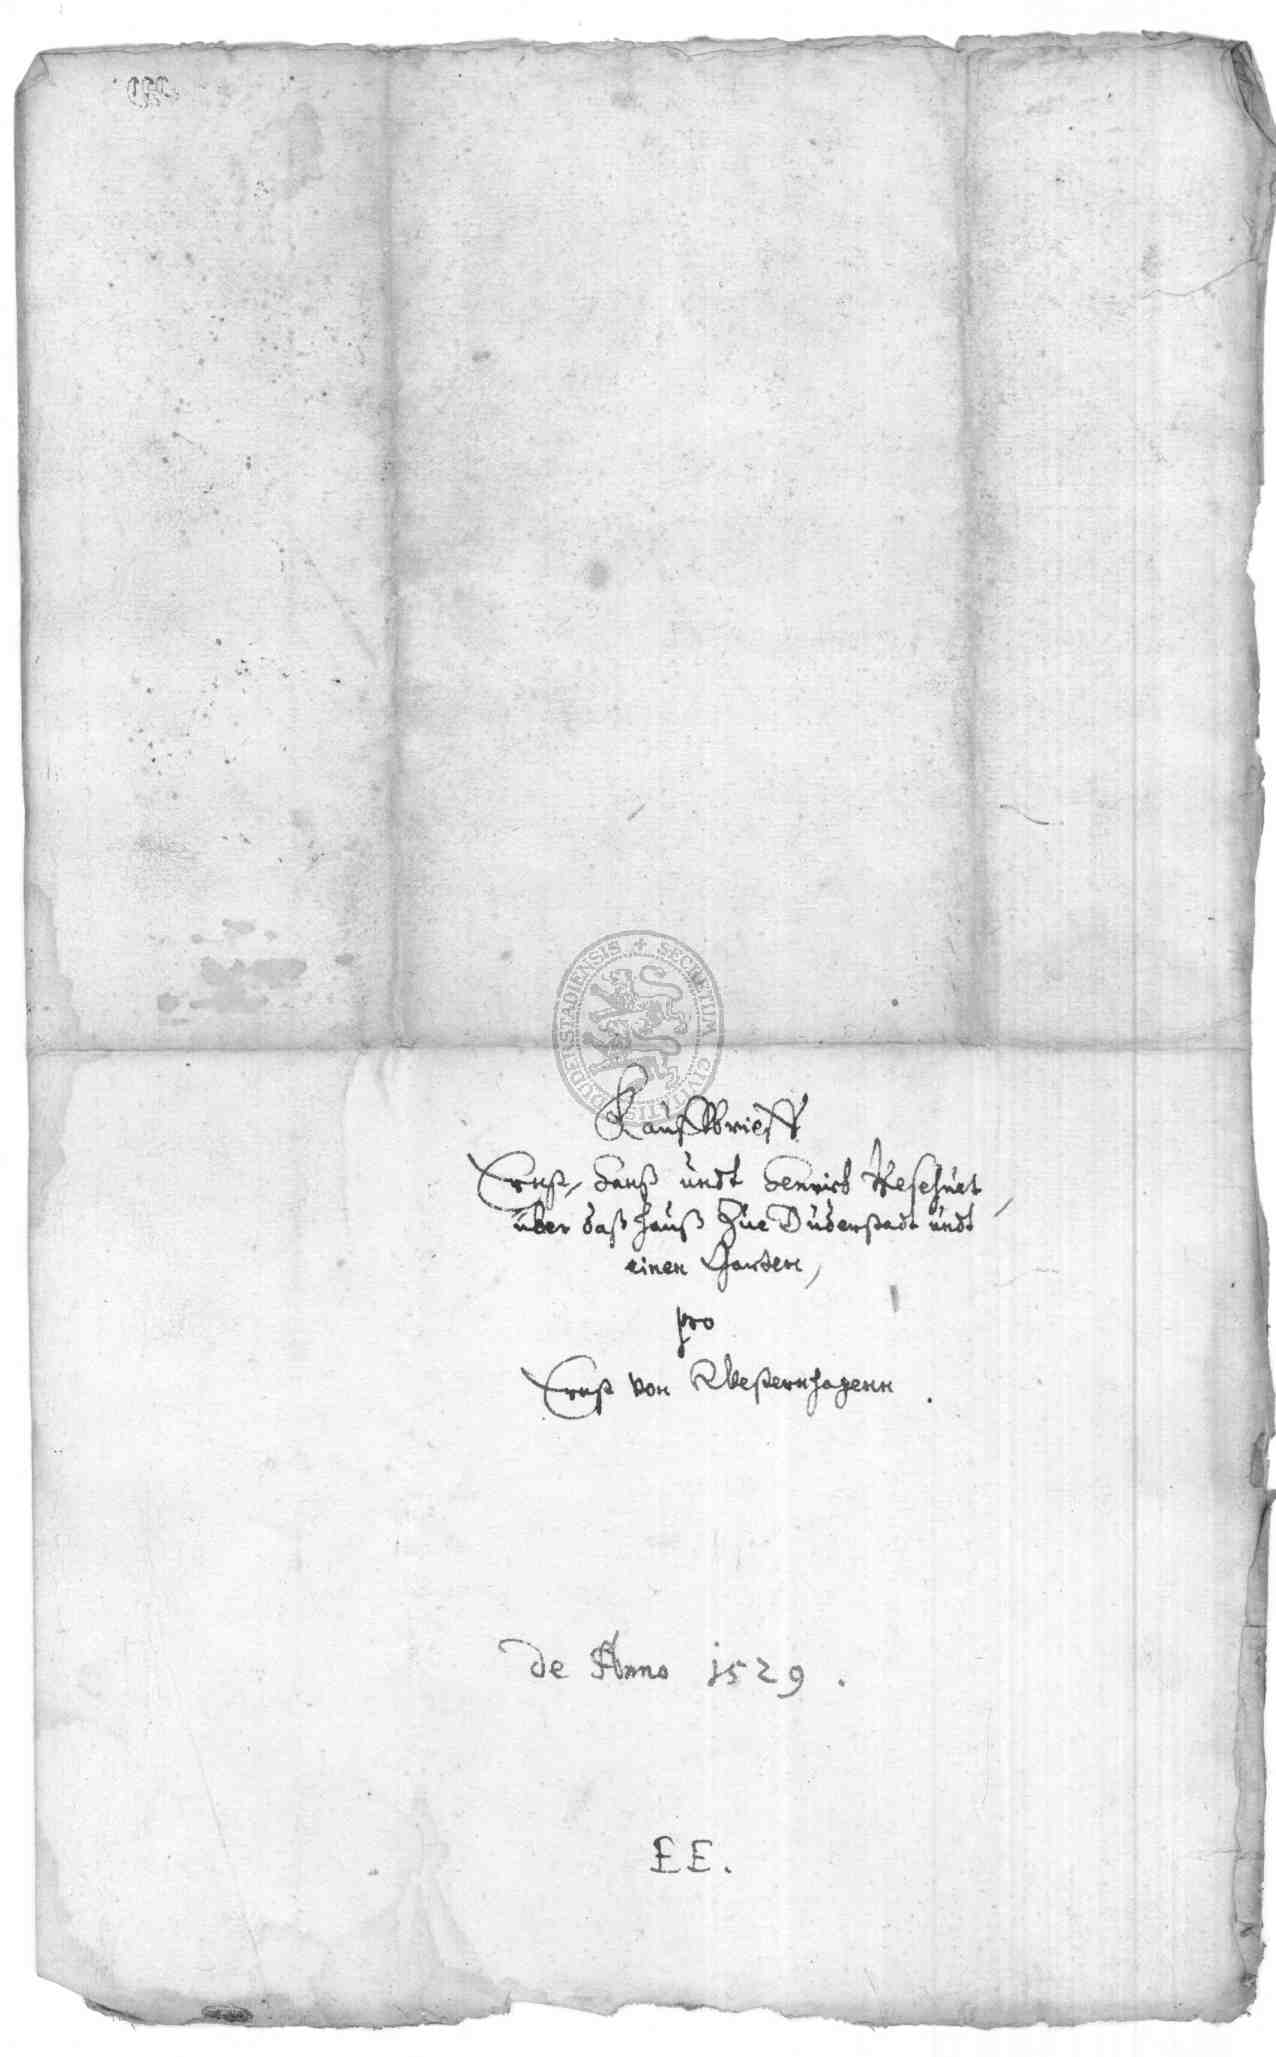 SECRETUM CIVITATIS DUDERSTADIENSIS
Kauffbrieff
Ernst, Hanß undt Henrich
über daß Hauß Zue Duderstadt undt
einen Garten,
pro
Ernst von Westernhagenn.
de Anno 1529.
EE.